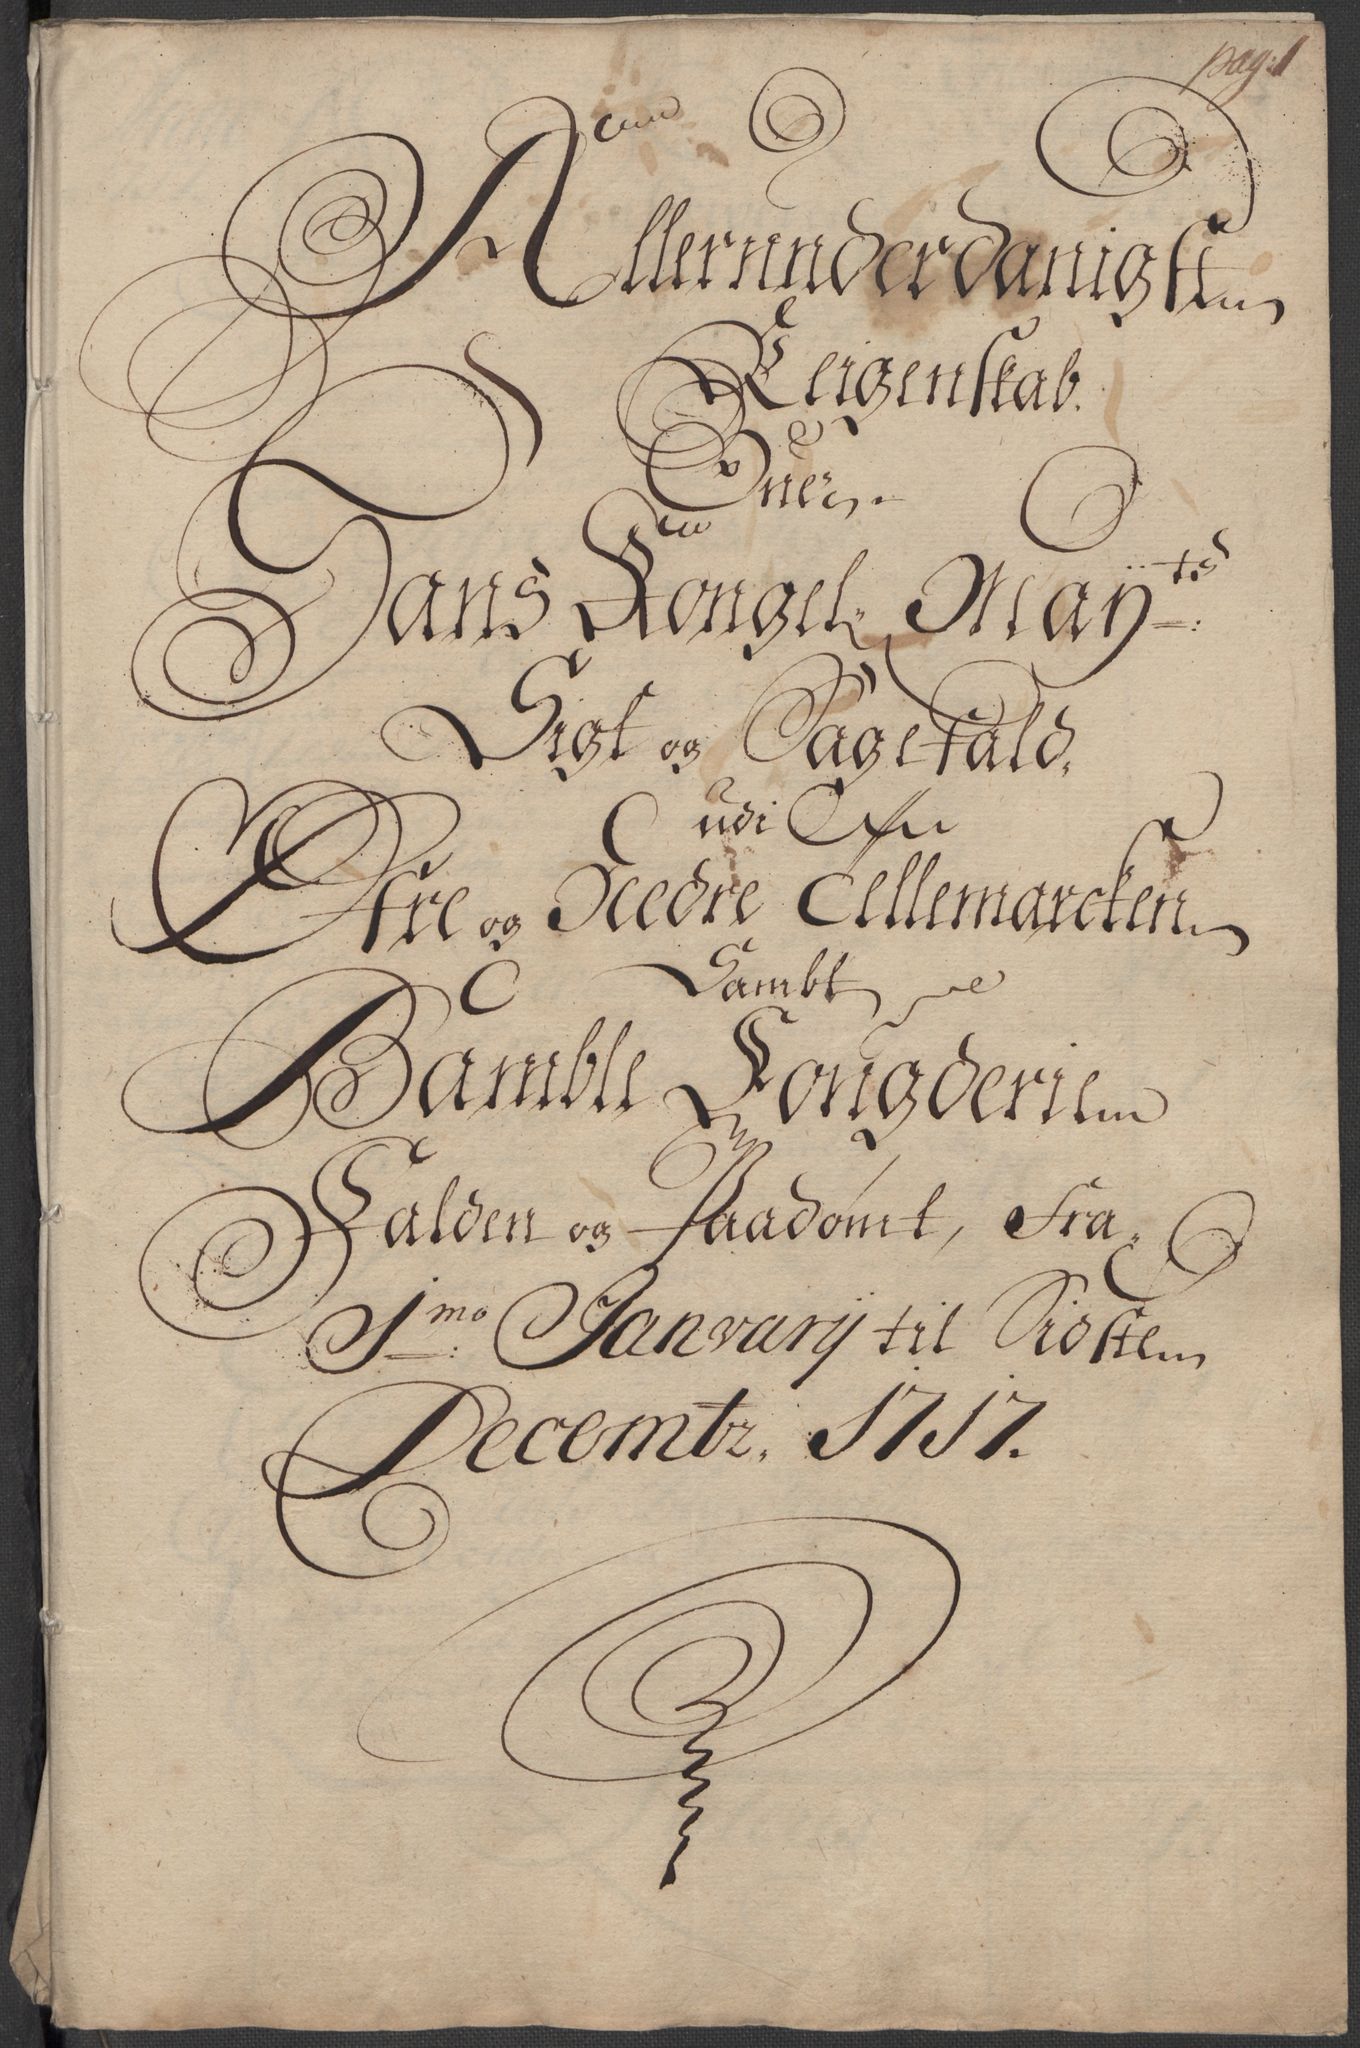 pag: 1
Allerunderdanigst
Reigenskab.
Over
Hans Kongel: Mayts:
Sigt og Sagefald,
udi
Øfre og Nedre Tellemarcken
Sambt
Bamble Fougderie
Falden og Paadømt, Fra
1mo: Janvarij til Sidsten
Decembr. 1717.